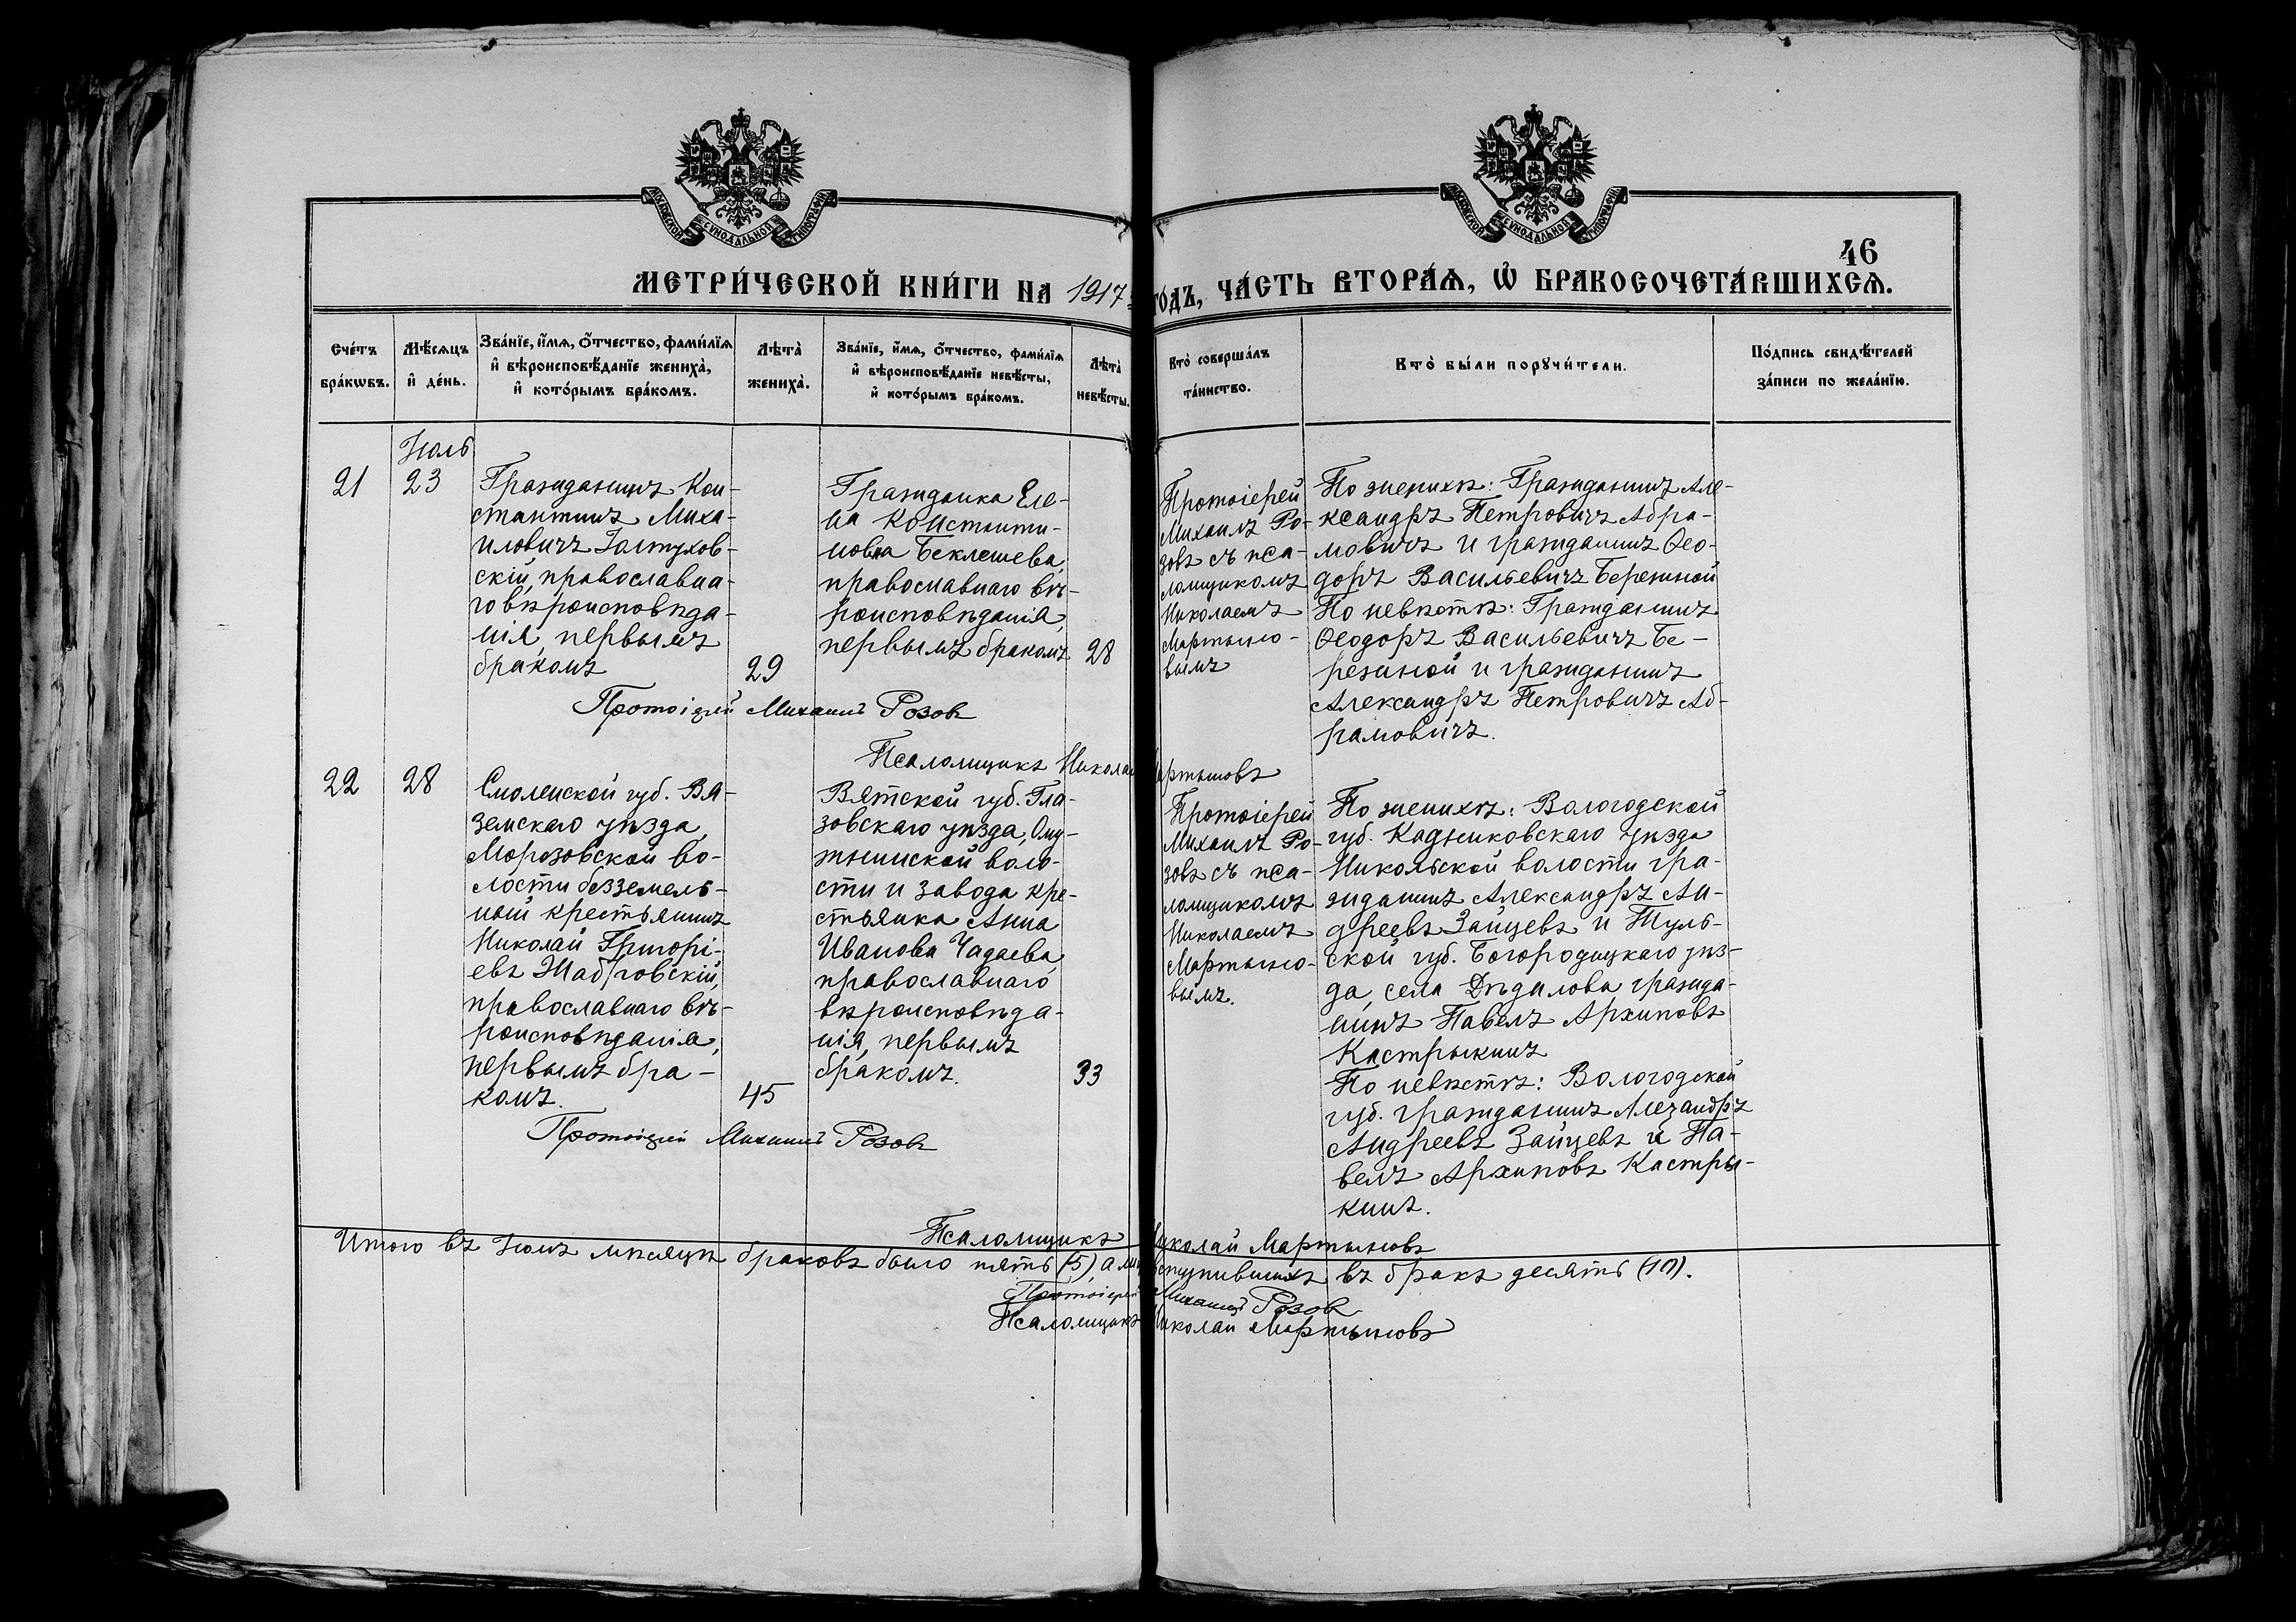 МОСКОВСКОЙ СѴНОДАЛЬНОЙ ТИПОГРАФІИ
МОСКОВСКОЙ СѴНОДАЛЬНОЙ ТИПОГРАФІИ
46
МЕТРИ́ЧЕСКОЙ КНИ́ГИ НА 1917 ГО́ДЪ, ЧА́СТЬ ВТОРА́Ѧ, Ѡ҆ БРАКОСОЧЕТА́ВШИХСѦ.
Сче́тъ
бра́кѡвъ.
Мѣ́сѧцъ
и҆ де́нь.
Зва́нїе, и҆́мѧ, ѻ҆́тчество, фами́лїѧ
и҆ вѣроисповѣ́данїе жениха̀,
и҆ кото́рымъ бра́комъ.
Лѣта̀
жениха̀.
Зва́нїе, и҆́мѧ, ѻ҆́тчество, фами́лїѧ
и҆ вѣроисповѣ́данїе невѣ́сты,
и҆ кото́рымъ бра́комъ.
Лѣта̀
невѣ́сты.
Кто̀ соверша́лъ
та́инство.
Кто̀ бы́ли порꙋчи́тели.
По́дпись свидѣ́телей
за́писи по жела́нїю.
Іюль
21
23
Гражданинъ Кон-
стантинъ Миха-
иловичъ
скій, православна-
го вѣроисповѣда-
нія, первымъ
бракомъ
29
Гражданка Еле-
на Константи-
новна Беклешева,
православнаго вѣ-
роисповѣданія,
первымъ бракомъ
28
Протоіерей
Михаилъ Ро-
зовъ съ пса-
ломщикомъ
Николаемъ
Мартыно-
вымъ
По женихѣ: Гражданинъ Але-
ксандръ Петровичъ Абра-
мовичъ и гражданинъ Ѳео-
доръ Васильевичъ Бережной
По невѣстѣ: Гражданинъ
Ѳеодоръ Васильевичъ Бе-
режной и гражданинъ
Александръ Петровичъ Аб-
рамовичъ.
Протоіерей Михаилъ Розовъ
Псаломщикъ Николай Мартыновъ
22
28
Смоленской губ. Вя-
земскаго уѣзда,
Морозовской во-
лости безземель-
ный крестьянинъ
Николай Григорі-
евъ
православнаго вѣ-
роисповѣданія,
первымъ бра-
комъ.
45
Вятской губ. Гла-
зовскаго уѣзда, Ому-
тнинской воло-
сти и завода кре-
стьянка Анна
Иванова Чадаева,
православнаго
вѣроисповѣда-
нія, первымъ
бракомъ.
33
Протоіерей
Михаилъ Ро-
зовъ съ пса-
ломщикомъ
Николаемъ
Мартыно-
вымъ.
По женихѣ: Вологодской
губ. Кадниковскаго уѣзда
Никольской волости гра-
жданинъ Александръ Ан-
дреевъ Зайцевъ и Туль-
ской губ. Богородицкаго уѣз-
да, села Дѣдилова гражда-
нинъ Павелъ Архиповъ
Кастрыкинъ
По невѣстѣ: Вологодской
губ. гражданинъ Алезандръ
Андреевъ Зайцевъ и Па-
велъ Архиповъ Кастры-
кинъ.
Протоіерей Михаилъ Розовъ
Псаломщикъ Николай Мартыновъ
Итого въ Іюлѣ мѣсяцѣ браковъ было пять (5), а вступившихъ въ бракъ десять (10).
Протоіерей Михаилъ Розовъ
Псаломщикъ Николай Мартыновъ